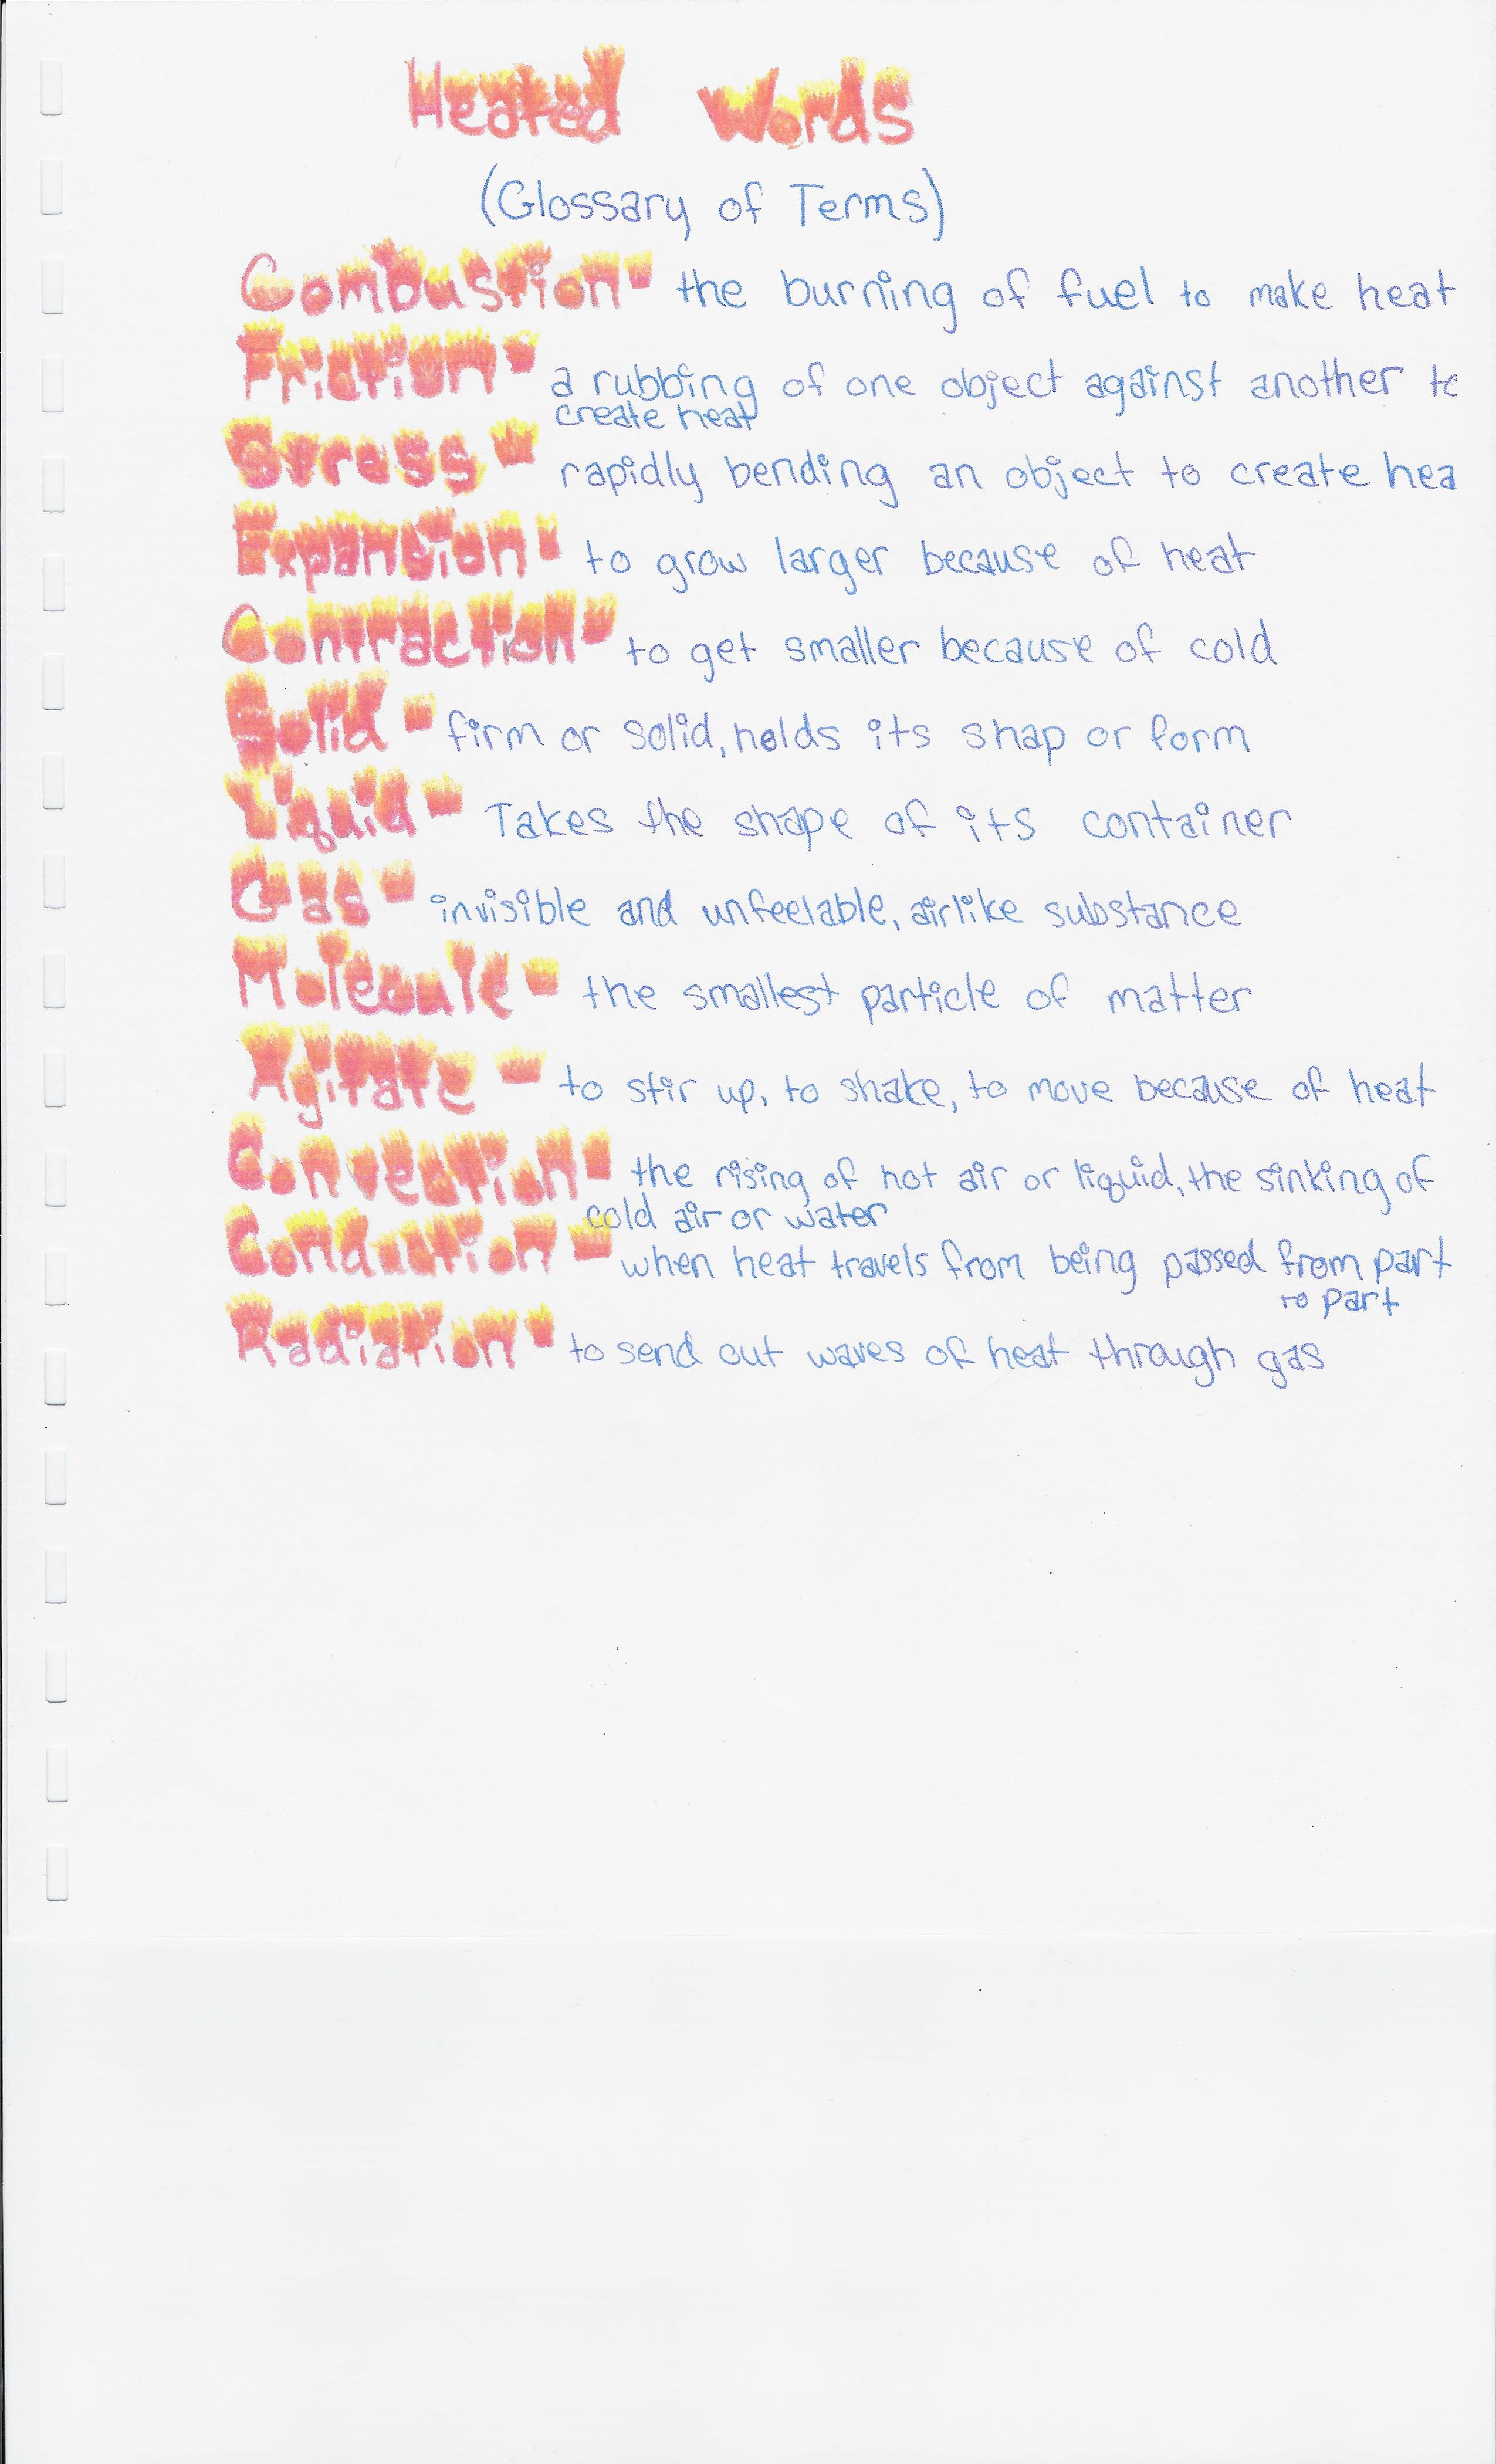 Heated Words
(Glossary of Terms)
Combustion- the burning of fuel to make heat
Friction- a rubbing of one object against another to
create heat
Stress - rapidly bending an object to create hea
Expansion- to grow larger because of heat
Contraction- to get smaller because of cold
Solid - firm or solid, holds its shap or form
Liquid - Takes the shape of its container
Gas - invisible and unfeelable, airlike substance
Molecule - the smallest particle of matter
Agitate - to stir up, to shake, to move because of heat
Convection- the rising of hot air or liquid, the sinking of
cold air or water
Conduction - when heat travels from being passed from part
to part
Radiation- to send out waves of heat through gas